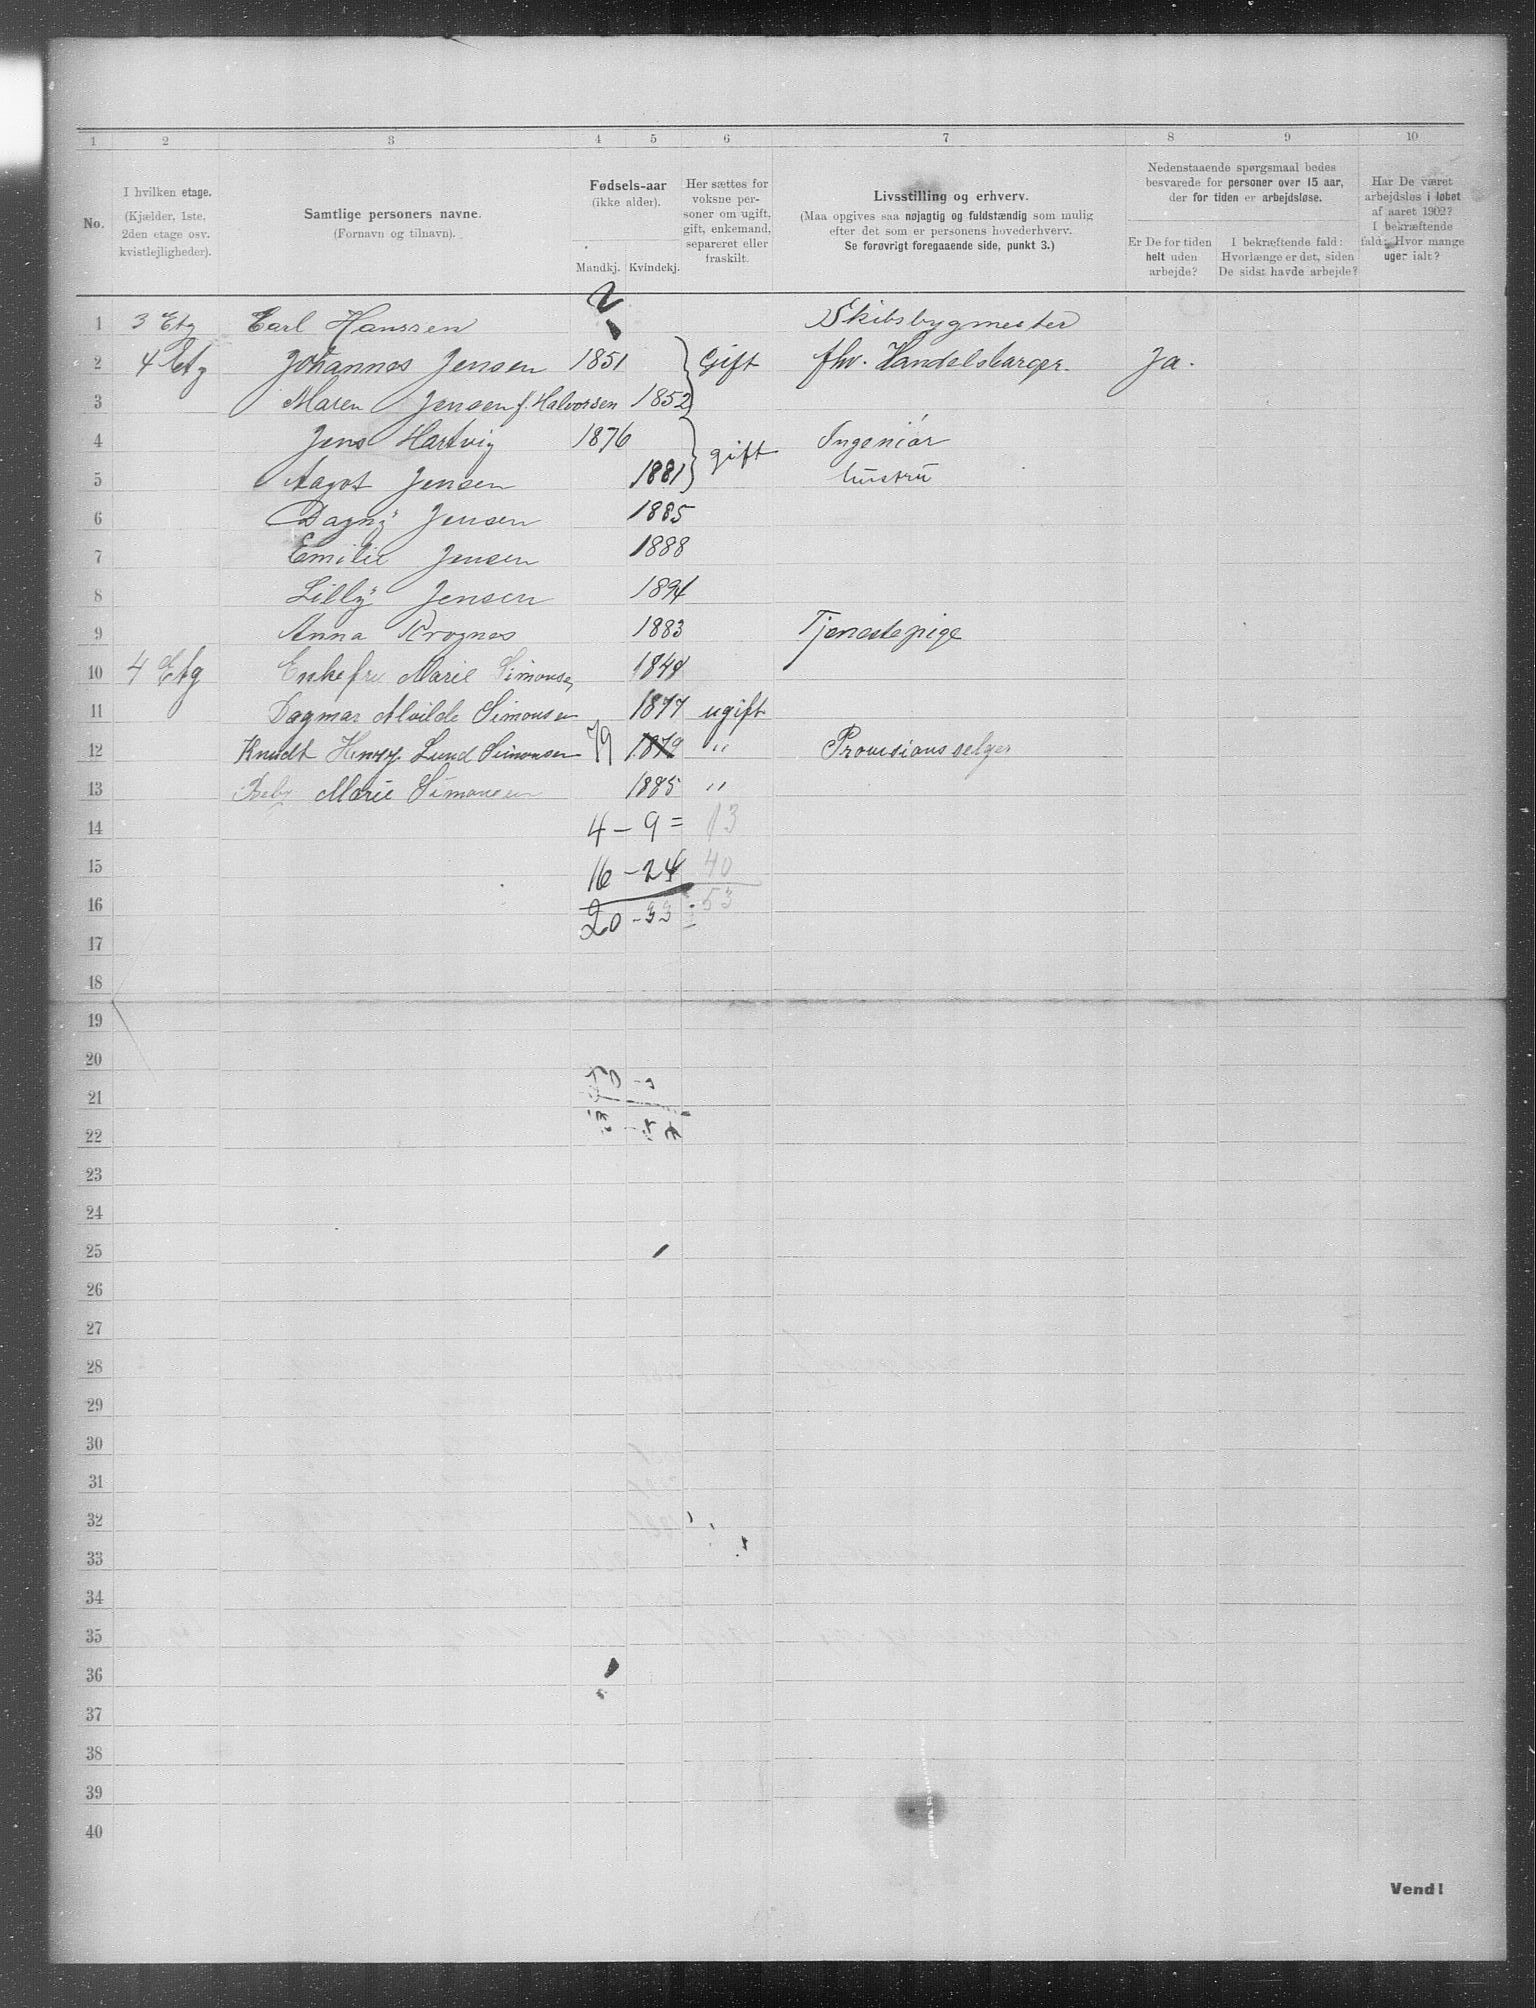 1 2 3 4 5 6 7 8 9 10
No.
I hvilken etage.
(Kjælder, 1ste,
2den etage osv.
kvistlejligheder).
Samtlige personers navne.
(Fornavn og tilnavn).
Fødsels-aar
(ikke alder).
Mandkj. Kvindekj.
Her sættes for
voksne per-
soner om ugift,
gift, enkemand,
separeret eller
fraskilt.
Livsstilling og erhverv.
(Maa opgives saa nøjagtig og fuldstændig som mulig
efter det som er personens hovederhverv.
Se forøvrigt foregaaende side, punkt 3.)
Nedenstaaende spørgsmaal bedes
besvarede for personer over 15 aar,
der for tiden er arbejdsløse.
Er De for tiden
helt uden
arbejde?
I bekræftende fald:
Hvorlænge er det, siden
De sidst havde arbejde?
Har De været
arbejdsløs i løbet
af aaret 1902?
I bekræftende
fald: Hvor mange
uger ialt?
2
1 3 Etg Carl Hanssen Skibsbygmester
2 4 Etg Johannes Jensen 1851 Gift fhv. Handelsbørger. Ja.
3 Maren Jensen f. Halvorsen 1852
4 Jens Hartvig 1876 gift Ingeniør
5 Aagot Jensen 1881 hustru
6 Dagny Jensen 1885
7 Emilie Jensen 1888
8 Lilly Jensen 1894
9 Anna Krognes 1883 Tjenestepige
10 4 Etg Enkefru Marie Simonsen 1844
11 Dagmar Alvilde Simonsen 1877 ugift
12 Knudt Henry Lund Simonsen 79 1879 " Provisionsselger
13 Marie Simonsen 1885 "
14 4 – 9 = 13
15 16 – 24 40
16 20 – 33 = 53
17
18
19
20
21
22
23
24
25
26
27
28
29
30
31
32
33
34
35
36
37
38
39
40
Vend!